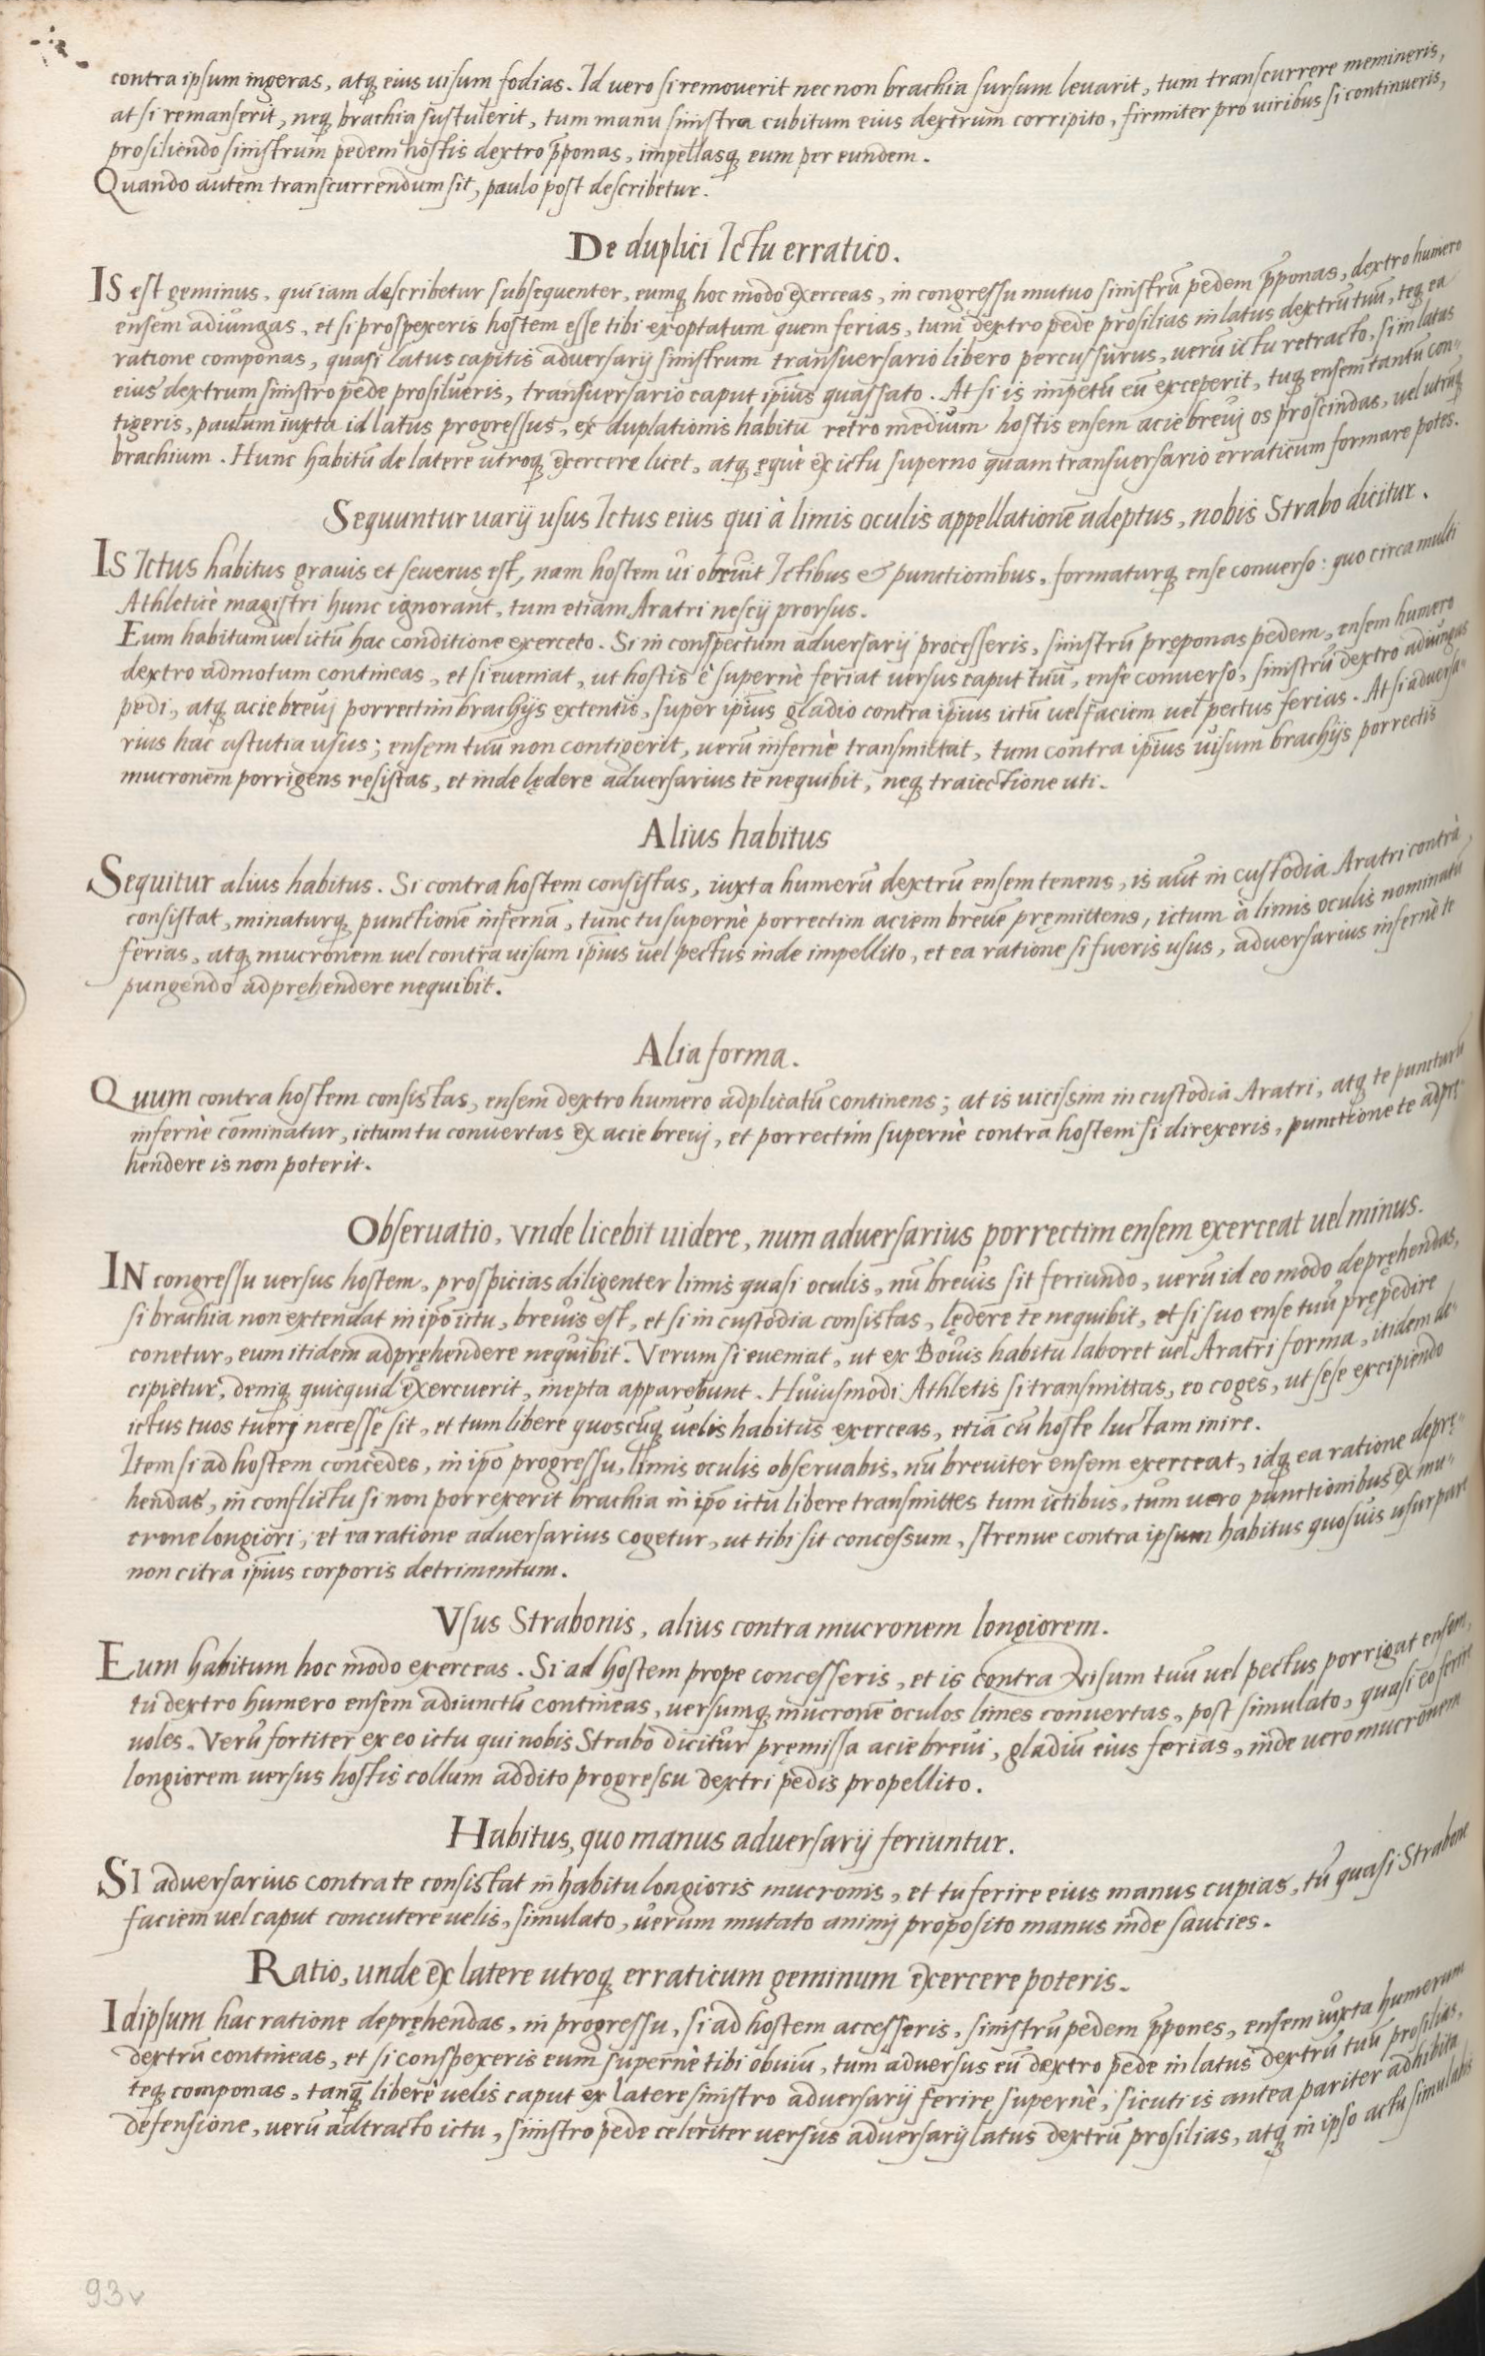 contra ipsum ingeras, atq; eius uisum fodias. Id uero si remouerit nec non brachia sursum leuarit, tum transcurrere memineris,
at si remanserit, neq; brachia sustulerit, tum manu sinistra cubitum eius dextrum corripito, firmiter pro uiribus si continueris,
prosiliendo sinistrum pedem hostis dextro p̄ponas, impellasq; eum per eundem.
Quando autem transcurrendum sit, paulo post describetur.
De duplici Ictu erratico.
IS est geminus, qui iam describetur subsequenter, eumq; hoc modo exerceas, in congressu mutuo sinistrū pedem p̄ponas, dextro humero
ensem adiungas, et si prospexeris hostem esse tibi exoptatum quem ferias, tum dextro pede prosilias in latus dextrū tuū, teq; ea
ratione componas, quasi latus capitis aduersarij sinistrum transuersario libero percussurus, uerū ictu retracto, si in latus
eius dextrum sinistro pede prosilueris, transuersario caput ip̄ius quassato. At si is impetū eū exceperit, tuq; ensem tantū con-
tigeris, paulum iuxta id latus progressus, ex duplationis habitu retro medium hostis ensem acie breuj os proscindas, uel utrūq;
brachium. Hunc habitū de latere utroq; exercere licet, atq; ęquè ex ictu superno quam transuersario erraticum formare potes.
Sequuntur uarij usus Ictus eius qui à limis oculis appellationē adeptus, nobis Strabo dicitur.
IS Ictus habitus grauis et seuerus est, nam hostem ui obruit Ictibus & punctionibus, formaturq; ense conuerso: quo circa multi
Athleticè magistri hunc ignorant, tum etiam Aratri nescij prorsus.
Eum habitum uel ictū hac conditione exerceto. Si in conspectum aduersarij processeris, sinistrū pręponas pedem, ensem humero
dextro admotum contineas, et si eueniat, ut hostis è supernè feriat uersus caput tuū, ense conuerso, sinistrū dextro adiungas
pedi, atq; acie breuj porrectim brachijs extentis, super ip̄ius gladio contra ip̄ius ictū uel faciem uel pectus ferias. At si aduersa-
rius hac astutia usus; ensem tuū non contigerit, uerū infernè transmittat, tum contra ip̄ius uisum brachijs porrectis
mucronem porrigens resistas, et inde lędere aduersarius te nequibit, neq; traiectione uti.
Alius habitus
Sequitur alius habitus. Si contra hostem consistas, iuxta humerū dextrū ensem tenens, is aūt in custodia Aratri contrà
consistat, minaturq; punctionē infernā, tunc tu supernè porrectim aciem breuē pręmittens, ictum à limis oculis nominatū
ferias, atq; mucronem uel contra uisum ip̄ius uel pectus inde impellito, et ea ratione si fueris usus, aduersarius infernè te
pungendo adpręhendere nequibit.
Alia forma.
Quum contra hostem consistas, ensem dextro humero adplicatū continens; at is uicissim in custodia Aratri, atq; te puncturū
infernè cōminatur, ictum tu conuertas ex acie breuj, et porrectim supernè contra hostem si direxeris, punctione te adprę-
hendere is non poterit.
Obseruatio, vnde licebit uidere, num aduersarius porrectim ensem exerceat uel minus.
IN congressu uersus hostem, prospicias diligenter limis quasi oculis, nū breuis sit feriundo, uerū id eo modo depręhendas,
si brachia non extendat in ip̄o ictu, breuis est, et si in custodia consistas, lędere te nequibit, et si suo ense tuū prępedire
conetur, eum itidem adpręhendere nequibit. Verum si eueniat, ut ex Bouis habitu laboret uel Aratri forma, itidem de-
cipietur, deniq; quicquid exercuerit, inepta apparebunt. Huiusmodi Athletis si transmittas, eo coges, ut sese excipiendo
ictus tuos tuerj necesse sit, et tum libere quoscūq; uelis habitus exerceas, etiā cū hoste luctam inire.
Item si ad hostem concedes, in ip̄o progressu, limis oculis obseruabis, nū breuiter ensem exerceat, idq; ea ratione deprę-
hendas, in conflictu si non porrexerit brachia in ip̄o ictu libere transmittes tum ictibus, tum uero punctionibus ex mu-
crone longiori, et ea ratione aduersarius cogetur, ut tibi sit concessum, strenue contra ipsum habitus quosuis usurpare
non citra ip̄ius corporis detrimentum.
Vsus Strabonis, alius contra mucronem longiorem.
Eum habitum hoc modo exerceas. Si ad hostem prope concesseris, et is contra uisum tuū uel pectus porrigat ensem,
tu dextro humero ensem adiunctū contineas, uersumq; mucronē oculos limes conuertas, post simulato, quasi eo ferire
uoles. Verū fortiter ex eo ictu qui nobis Strabo dicitur pręmissa acie breui, gladiū eius ferias, inde uero mucronem
longiorem uersus hostis collum addito progressu dextri pedis propellito.
Habitus, quo manus aduersarij feriuntur.
SI aduersarius contra te consistat in habitu longioris mucronis, et tu ferire eius manus cupias, tū quasi Strabone
faciem uel caput concutere uelis, simulato, uerum mutato animj proposito manus inde saucies.
Ratio, unde ex latere utroq; erraticum geminum exercere poteris.
Idipsum hac ratione depręhendas, in progressu, si ad hostem accesseris, sinistrū pedem p̄pones, ensem iuxta humerum
dextrū contineas, et si conspexeris eum supernè tibi obuiū, tum aduersus eū dextro pede in latus dextrū tuū prosilias,
teq; componas, tanq̄ liberè uelis caput ex latere sinistro aduersarij ferire supernè, sicuti is antea pariter adhibita
defensione, uerū adtracto ictu, sinistro pede celeriter uersus aduersarij latus dextrū prosilias, atq; in ipso actu simulabis
93v